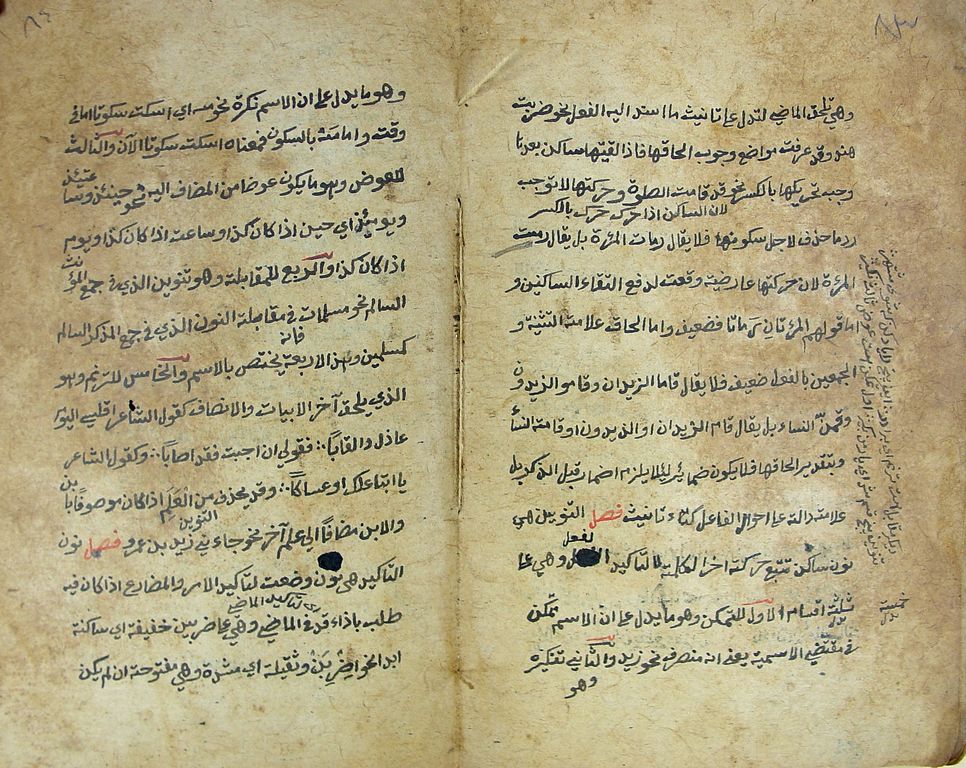 وهي تلحق الماضي لتدل على تانيث ما اسند اليه الفعل نحو ضربت
هند وقد عرفت مواضع وجوب الحاقها فاذا لقيتها ساكن بعدها
وجب تحريكها بالكسر نحو قد قامت الصلوة وحركتها لا توجب
لان الساكن اذا حرك حرك بالكسر
رد ما حذف لاجل سكونها فلا يقال رمات المرءة بل يقال رمت
المرءة لان حركتها عارضية وقعت لدفع التقاء الساكنين و
اما قولهم المرءتان رماتا فضعيف واما الحاق علامة التثنية و
الجمعين بالفعل ضعيف فلا يقال قاما الزيدان وقاموا الزيدون
وقمن النساء بل يقال قام الزيدان او الزيدون او قامت النساء
وبتقدير الحاقها فلا يكون ضمائر لئلا يلزم اضمار قبل الذكر بل
علامة دالة على احوال الفاعل كتاء تانيث فصل التنوين هي
نون ساكن تتبع حركة اخر الكلمة لا لتاكيد الفعل وهي على
لفعل
ثلثة اقسام الاول للتمكن وهو ما يدل على ان الاسم تمكن
في مقتضي الاسمية يعني انه منصرف نحو زيد والثاني تنكيره
وهو
خمسة
٨٤
وهو ما يدل على ان الاسم نكرة نحو صه اي اسكت سكوتا ما في
وقت واما صه بالسكون فمعناه اسكت سكوتا الآن والثالث
للعوض وهو ما يكون عوضا من المضاف اليه نحو حينئذ وساعتئذ
ويومئذ اي حين اذا كان كذا وساعت اذا كان كذا ويوم
اذا كان كذا والرابع للمقابلة وهو تنوين الذي في جمع المؤنث
السالم نحو مسلمات في مقابلة النون الذي في جمع المذكر السالم
كمسلمين وهذا الاربعة يختص بالاسم والخامس للترنم وهو
فانه
الذي يلحق آخر الابيات والانصاف كقول الشاعر اقلي اللوم
عاذل والعتابا ∴ فقولي ان اجبت فقد اصابا ∴ وكقول الشاعر
يا ابتا علك او عساكا ∴ وقد يحذف من العلم اذا كان موصوفا بابن
التنوين
والابن مضافا الى علم آخر نحو جاءني زيد بن عمرو فصل نون
التاكيد هي نون وضعت لتاكيد الامر والمضارع اذا كان فيه
تاكيد الماضي
طلب باذاء قد في الماضي وهي على ضربين خفيفة اي ساكنة
ابدا نحو اضربن وثقيلة اي مشددة وهي مفتوحة ان لم يكن